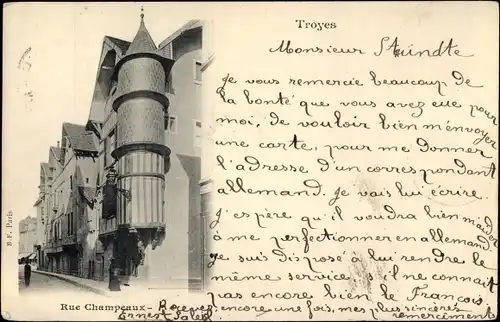 Troyes
Monsieur Stündte
Je vous remercie beaucoup de
la bonté que vous avez eue pour
moi, de vouloir bien m'envoyer
une carte, pour me donner
l'adresse d'un correspondant
allemand. Je vais lui écrire.
J'espère qu'il voudra bien m'aider
à me perfectionner en allemand,
je suis disposé à lui rendre le
même service, s'il ne connait
pas encore bien le Français.
encore une fois, mes plus sincères
remerciement
Rue Champeaux
Ernest
B. F. Paris